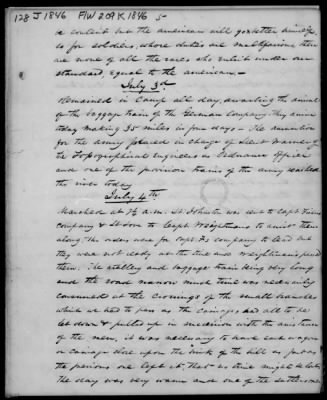 128 J 1846 F/W 209 K 1846 5
be content but the american will go better himself,
so for soldiers, whose duties are multifarious there
are none of all the races who enlist under our
standard, equal to the american —
July 3d
Remained in Camp all day, awaiting the arrival
of the baggage train of the German Company they came
today making 35 miles in four days — The ammunition
for the army placed in charge of Lieut Warner of
the Topographical Engineers as Ordnance Officer
and one of the provision trains of the army reached
the river today
July 4th
Marched at 7½ a.m. Lt Johnston was sent to Capt
company & to Capt Weightmans to assist them
along. The orders were for Capt company to lead but
they were not ready at the time and Weightmans passed
them. The artillery and baggage train being very long
and the road narrow much time was necessarily
consumed at the crossings of the small branches
which we had to pass as the carriages had all to be
let down & pulled up in succession with the assistance
of the men, it was necessary to have each wagon
or carriage close upon the brink of the hill as fast as
the previous one left it, that no time might be lost,
the day was very warm and one of the